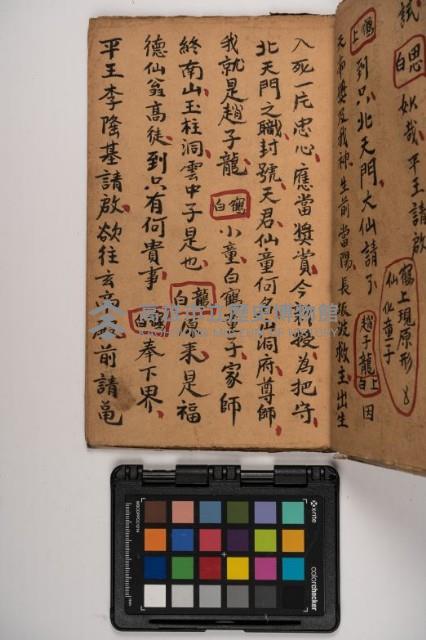 試
思白 如哉平王請
鶴上現原形
仙化童子
鶴上 到只北天門大仙請了 趙子龍上白 因
前當陽長坂波救主出生
入死一片忠心應當獎賞今
為把守
北天門之職封號天君仙童何名山洞府尊師
我就是趙子龍 鶴白 小童白鶴童子家師
終南山玉柱洞雲中子是也 龍白 原來是福
德仙翁高徒到只有何貴事 鶴白 奉下界
平王李隆基請啟欲往玄
前請黽
高雄市立歷史博物館
x-rite
colorchecker